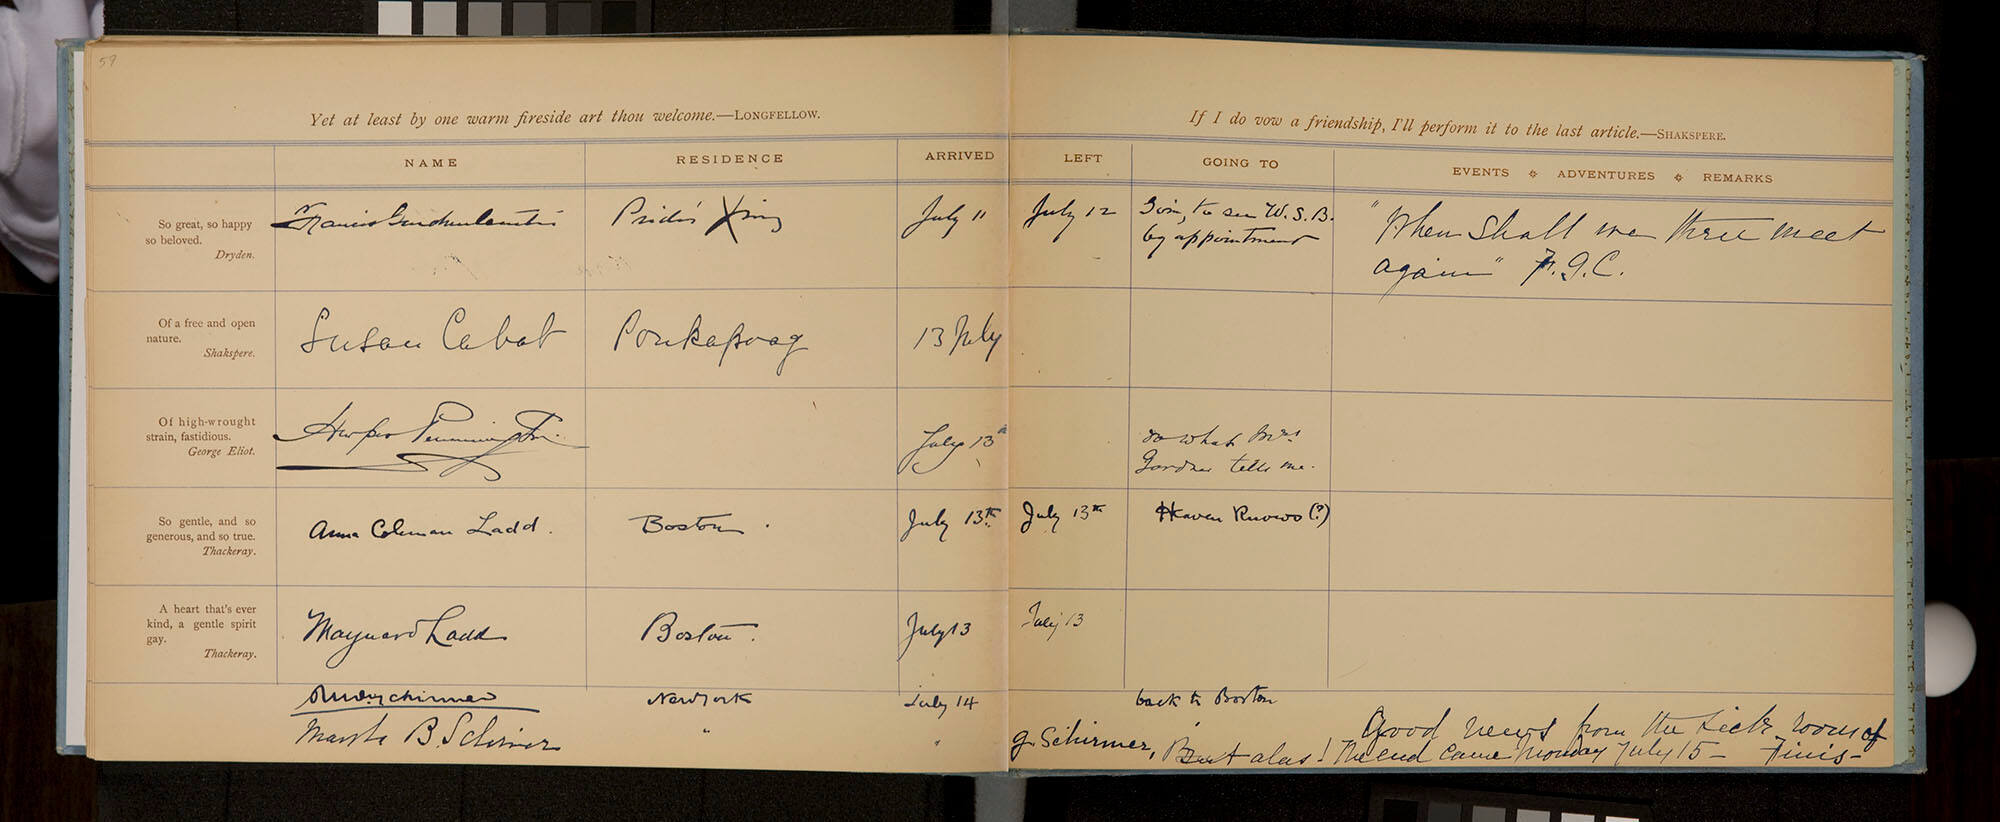 59
Yet at least by one warm fireside art thou welcome.—LONGFELLOW.
If I do vow a friendship, I'll perform it to the last article.—SHAKSPERE.
NAME RESIDENCE ARRIVED LEFT GOING TO EVENTS ADVENTURES REMARKS
So great, so happy
so beloved.
Dryden.
Francis
Pride's Xing
July 11
July 12
to see W.S.B.
by appointment
"When shall we three meet
again"
Of a free and open
nature.
Shakspere.
Susan Cabot
Ponkapoag
13 July
Of high-wrought
strain, fastidious.
George Eliot.
Harper Pennington.
July 13th
to what Mrs
Gardner tells me.
So gentle, and so
generous, and so true.
Thackeray.
Anna Coleman Ladd.
Boston.
July 13th
July 13th
Heaven Knows (?)
A heart that's ever
kind, a gentle spirit
gay.
Thackeray.
Maynard Ladd
Boston.
July 13
July 13
Schirmer
New York
July 14
back to Boston
B. Schirmer
"
"
Good news from the sick room of
G. Schirmer, But alas! The end came Monday July 15 — Finis —